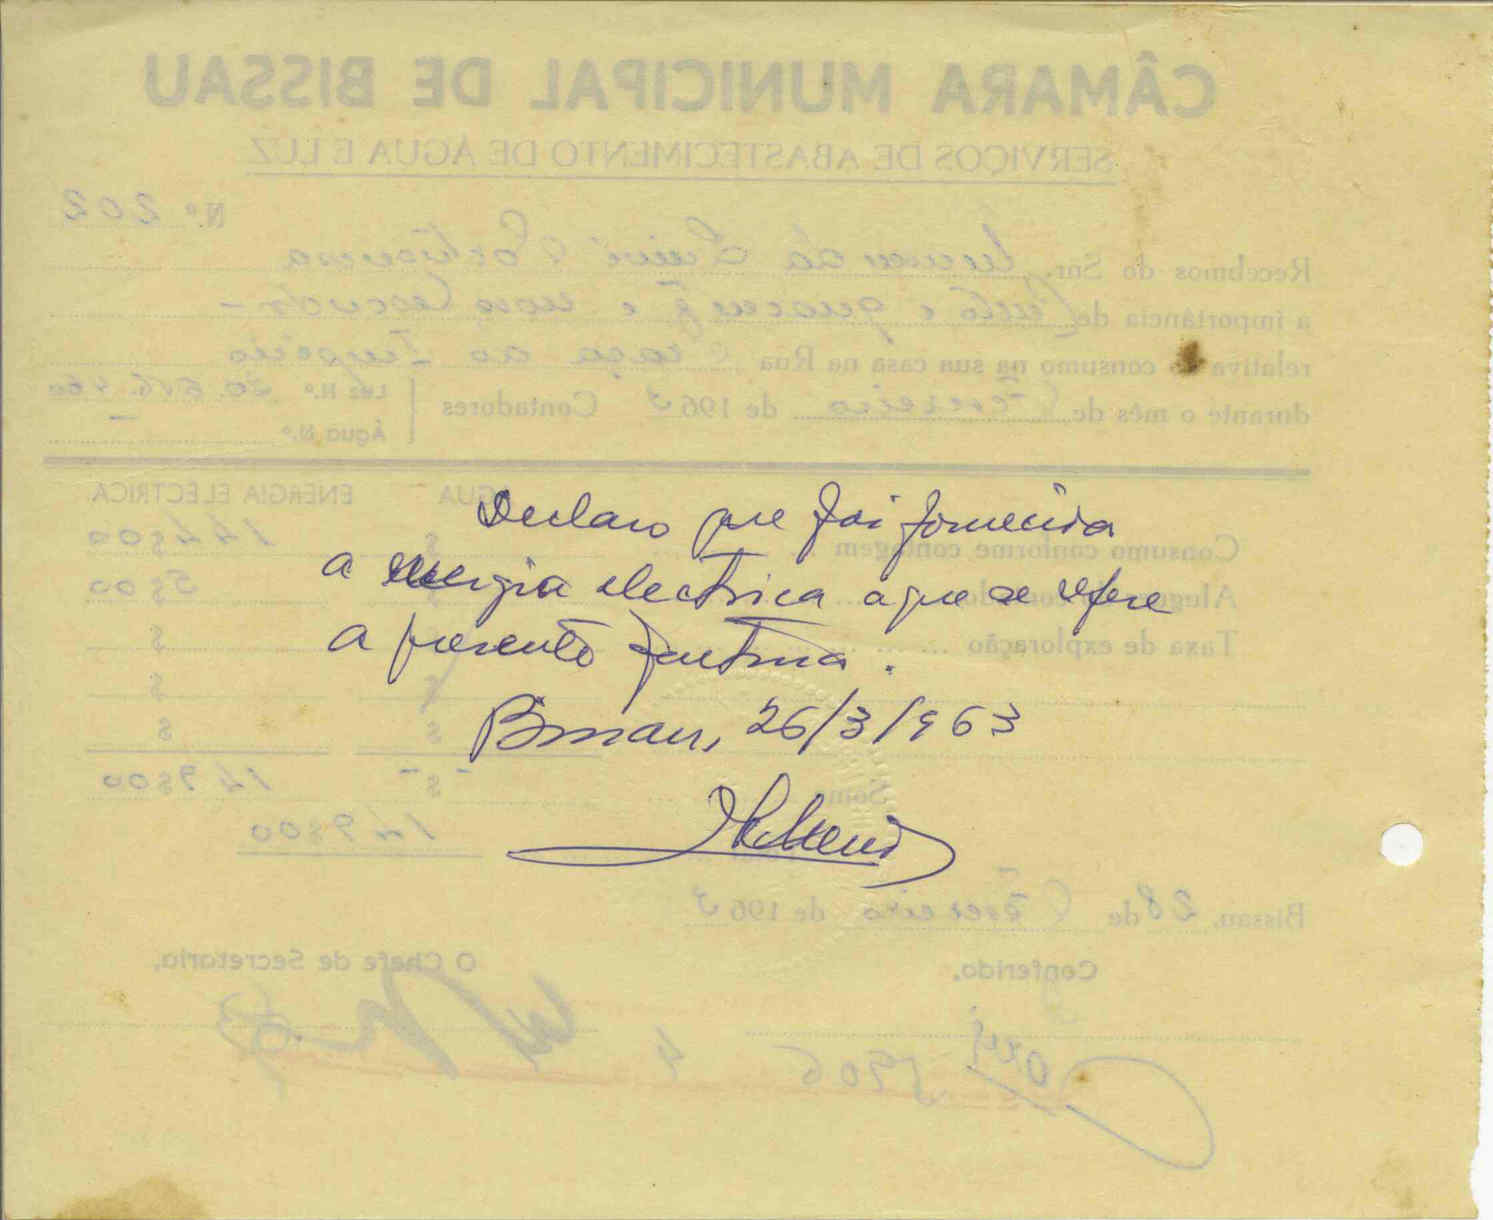 CÂMARA MUNICIPAL DE BISSAU
SERVIÇOS DE ABASTECIMENTO DE ÁGUA E LUZ
N.º 202
Recebemos do Snr.
a importância de Cento e quarenta e nove escudos -
relativa ao consumo na sua casa na Rua Praça do Império
durante o mês de Fevereiro de 1963 Contadores
Luz N.º
Água N.º -
AGUA ENERGIA ELECTRICA
Consumo conforme contagem $ 144$00
Aluguer 5$00
Taxa de exploração $ $
$ $
$ $
Soma -$- 149$00
149$00
Declaro que foi fornecida
a energia electrica a que se refere
a presente factura.
Bissau, 26/3/963
Bissau, 28 de Fevereiro de 1963
Conferido, O Chefe de Secretaria,